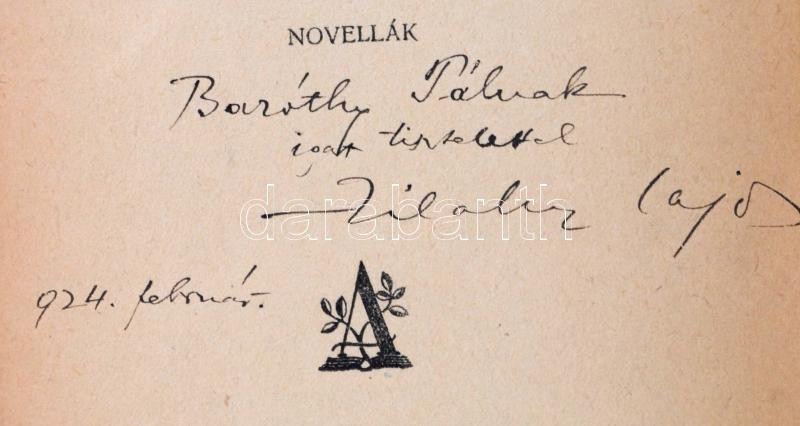 NOVELLÁK
Baróthy Pálnak
igaz tisztelettel
Zilahy Lajos
darabanth
924. február.
A